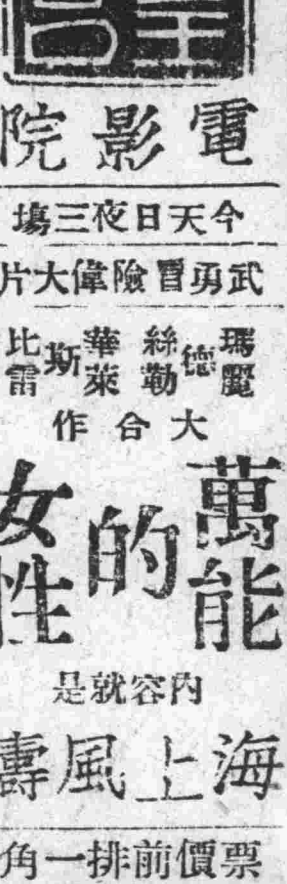 電影院
今天日夜三塲
武勇冒險偉大片
瑪麗德絲勒 華萊斯比雷
大合作
萬能的女性
內容就是
海上風濤
票價前排一角